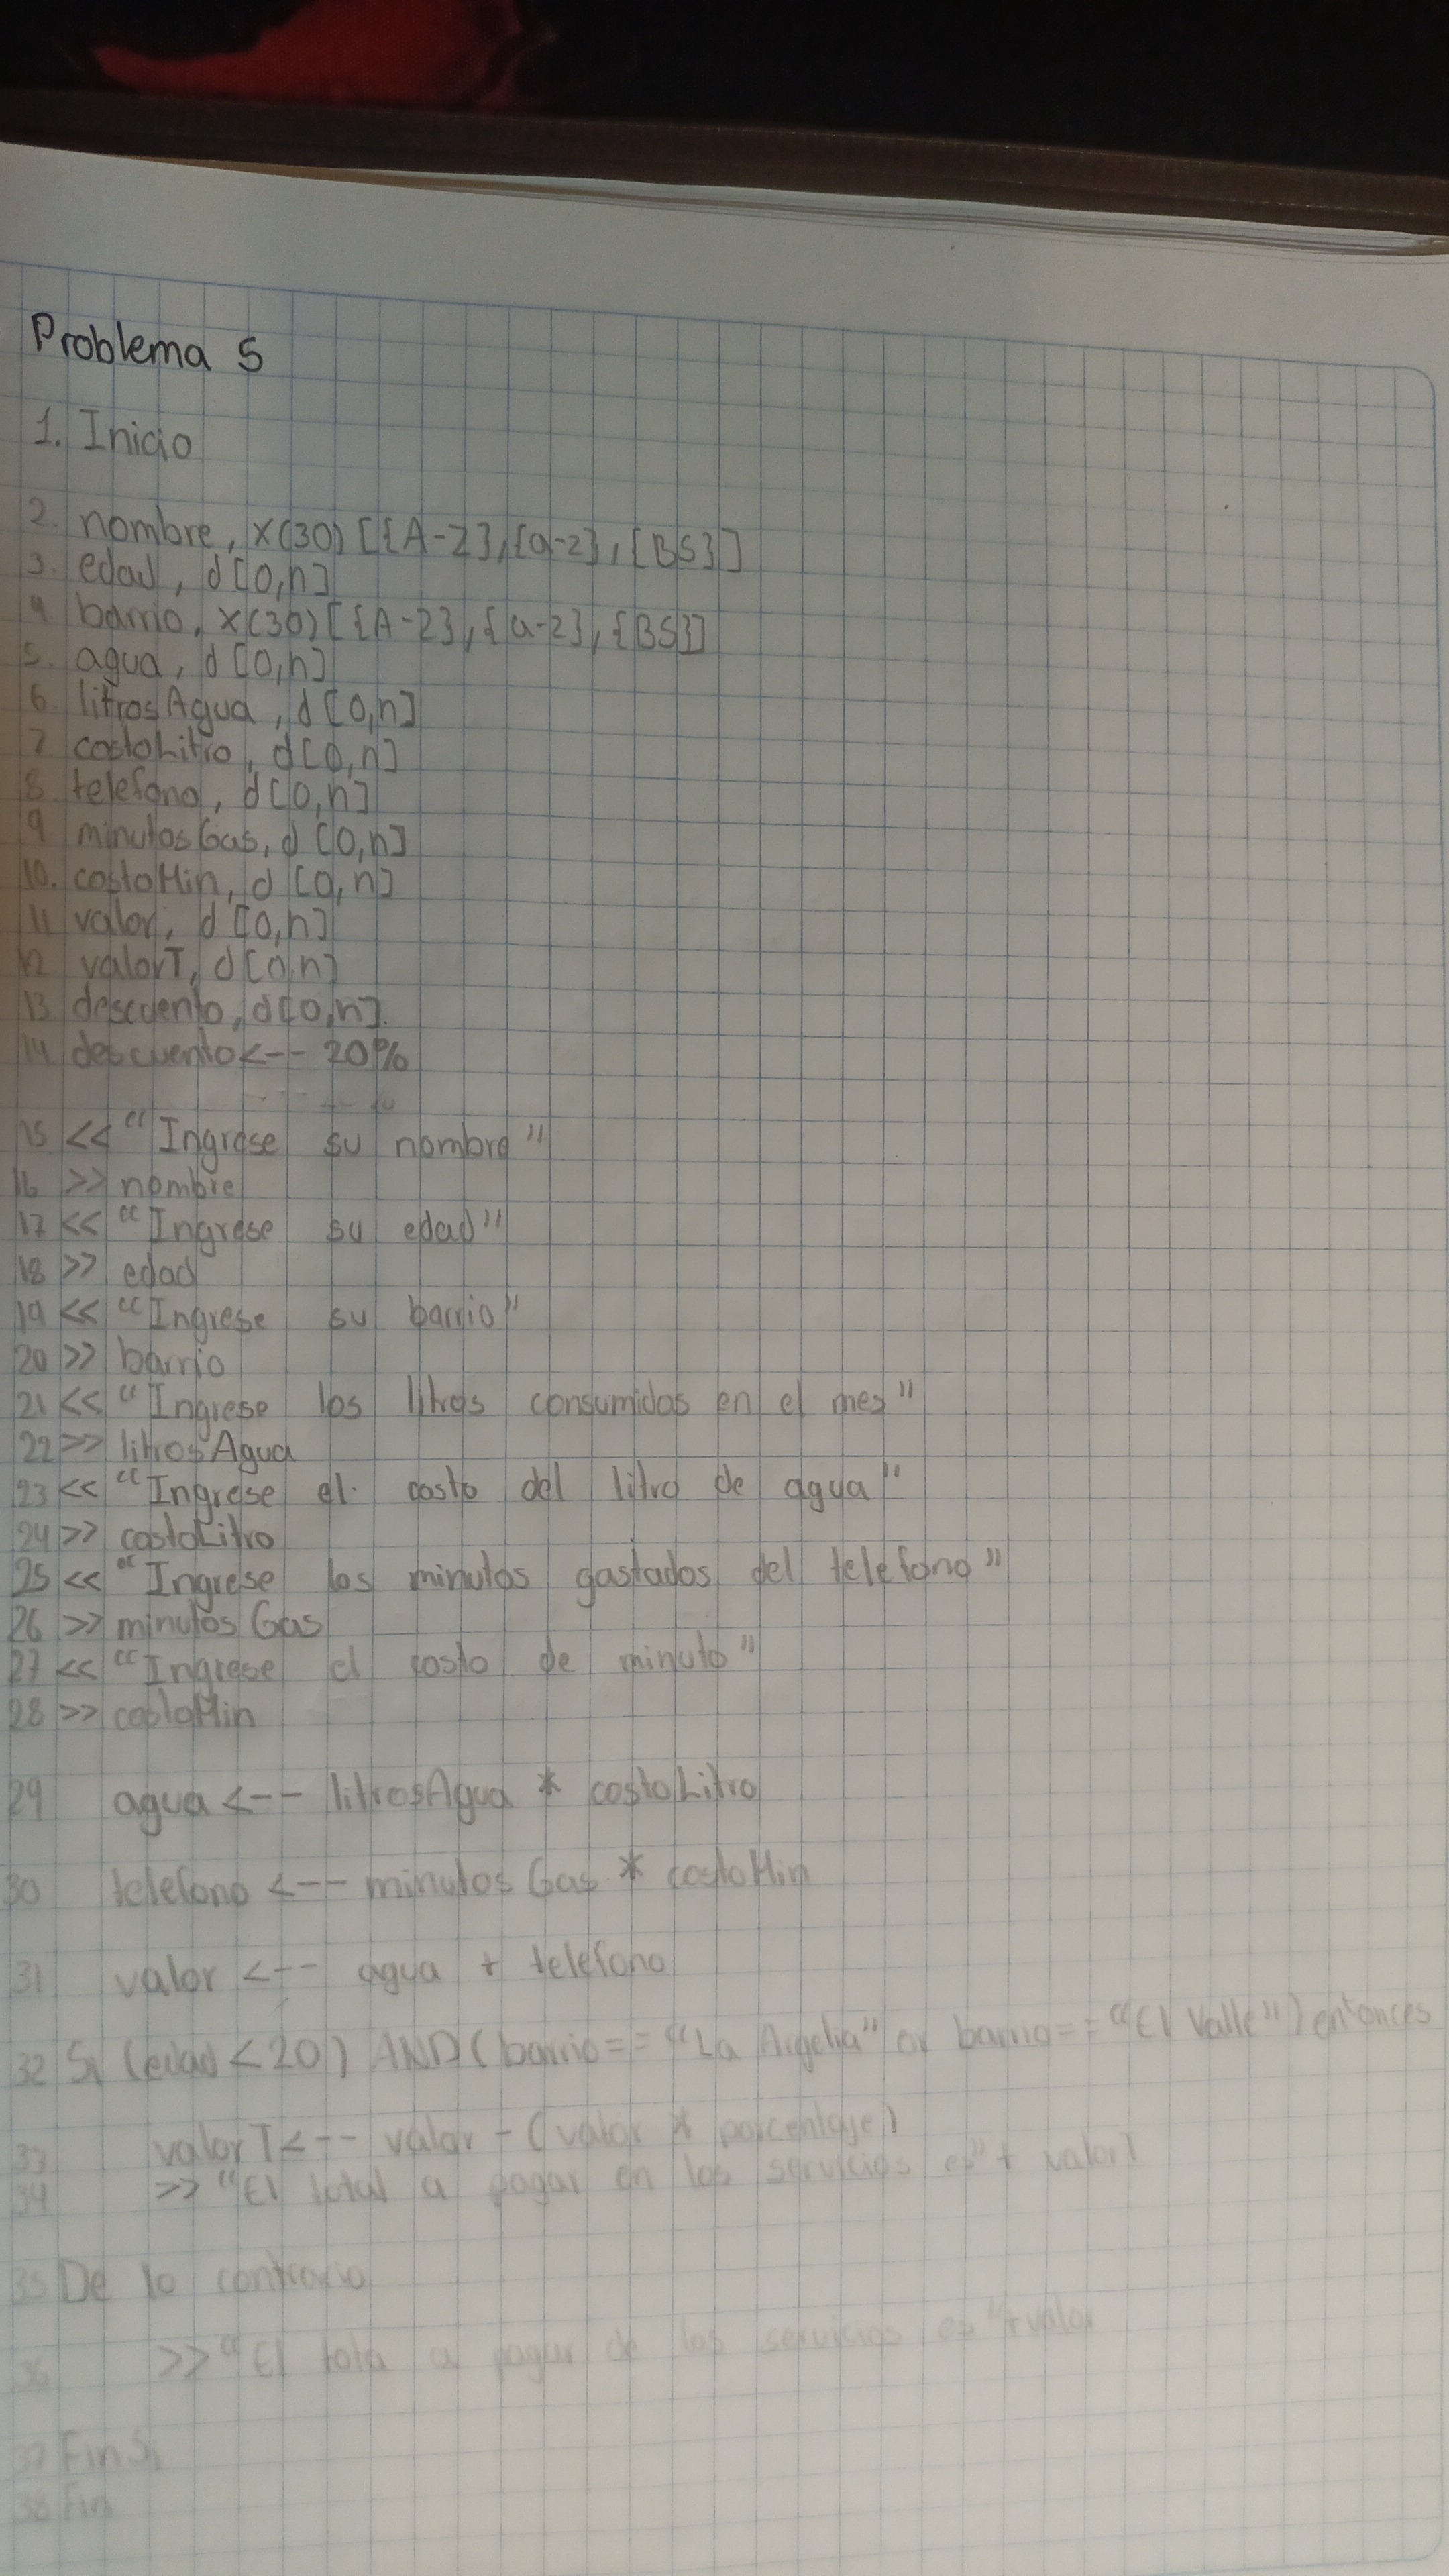 Problema 5
1. Inicio
2. nombre, x(30) [{A-Z},{a-z},{BS}]
3. edad, d[0,n]
4 barrio, x(30) [{A-Z},{a-z},{BS}]
5. agua, d[0,n]
6. litrosAgua, d[0,n]
7. costoLitro, d[0,n]
8 telefono, d[0,n]
9 minutosGas, d[0,n]
10. costoMin, d[0,n]
11 valor, d[0,n]
12 valorT, d[0,n]
13 descuento, d[0,n].
14 descuento <-- 20%
15 << "Ingrese su nombre"
16 >> nombre
17 << "Ingrese su edad"
18 >> edad
19 << "Ingrese su barrio"
20 >> barrio
21 << "Ingrese los litros consumidos en el mes"
22 >> litrosAgua
23 << "Ingrese el costo del litro de agua"
24 >> costoLitro
25 << "Ingrese los minutos gastados del telefono"
26 >> minutosGas
27 << "Ingrese el costo de minuto"
28 >> costoMin
29 agua <-- litrosAgua * costoLitro
30 telefono <-- minutosGas * costoMin
31 valor <-- agua + telefono
32 Si (edad < 20) AND (barrio == "La Argelia" or barrio == "El Valle") entonces
33 valorT <-- valor - (valor * porcentaje)
34 >> "El total a pagar en los servicios es" + valorT
35 De lo contrario
36 >> "El tola a pagar de los servicios es" + valor
37 Fin Si
38 Fin